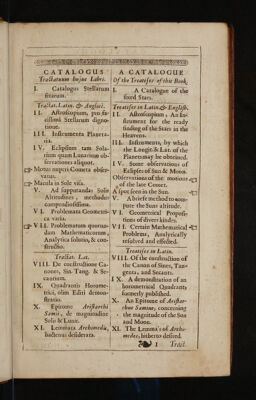 CATALOGUS
Tractatuum hujus Libri.
I. Catalogus Stellarum
fixarum.
Tractat. Latin. & Anglicè.
II. Astroscopium, pro fa-
cillimâ Stellarum digno-
tione.
III. Instrumenta Planeta-
ria.
IV. Eclipsium tam Sola-
rium quam Lunarium ob-
servationes aliquot.
Motus nuperi Cometæ obser-
vatus.
Macula in Sole visa.
V. Ad supputandas Solis
Altitudines, methodus
compendiosissima.
VI. Problemata Geometri-
ca varia.
VII. Problematum quorun-
dam Mathematicorum,
Analytica solutio, & con-
structio.
Tractat. Lat.
VIII. De constructione Ca-
nonis, Sin. Tang. & Se-
cantium.
IX. Quadrantis Horome-
trici, olim Editi demon-
stratio.
X. Epitome Aristarchi
Samii, de magnitudine
Solis & Lunæ.
XI. Lemmata Archimedis,
hactenus desiderata.
A CATALOGUE
Of the Treatises of this Book.
I. A Catalogue of the
fixed Stars.
Treatises in Latin. & English.
II. Astroscopium, An In-
strument for the ready
finding of the Stars in the
Heavens.
III. Instruments, by which
the Longit. & Lat. of the
Planets may be obtained.
IV. Some observations of
Eclipses of Sun & Moon.
Observations of the motions
of the late Comet.
A spot seen in the Sun.
V. A brief method to com-
pute the Suns altitude.
VI. Geometrical Proposi-
tions of divers kindes.
VII. Certain Mathematical
Problems, Analytically
resolved and effected.
Treatises in Latin.
VIII. Of the construction of
the Canon of Sines, Tan-
gents, and Secants.
IX. A demonstration of an
horometrical Quadrants
formerly published.
X. An Epitome of Aristar-
chus Samius, concerning
the magnitude of the Sun
and Moon.
XI. The Lemma's of Archi-
medes, hitherto desired.
1 Tract.